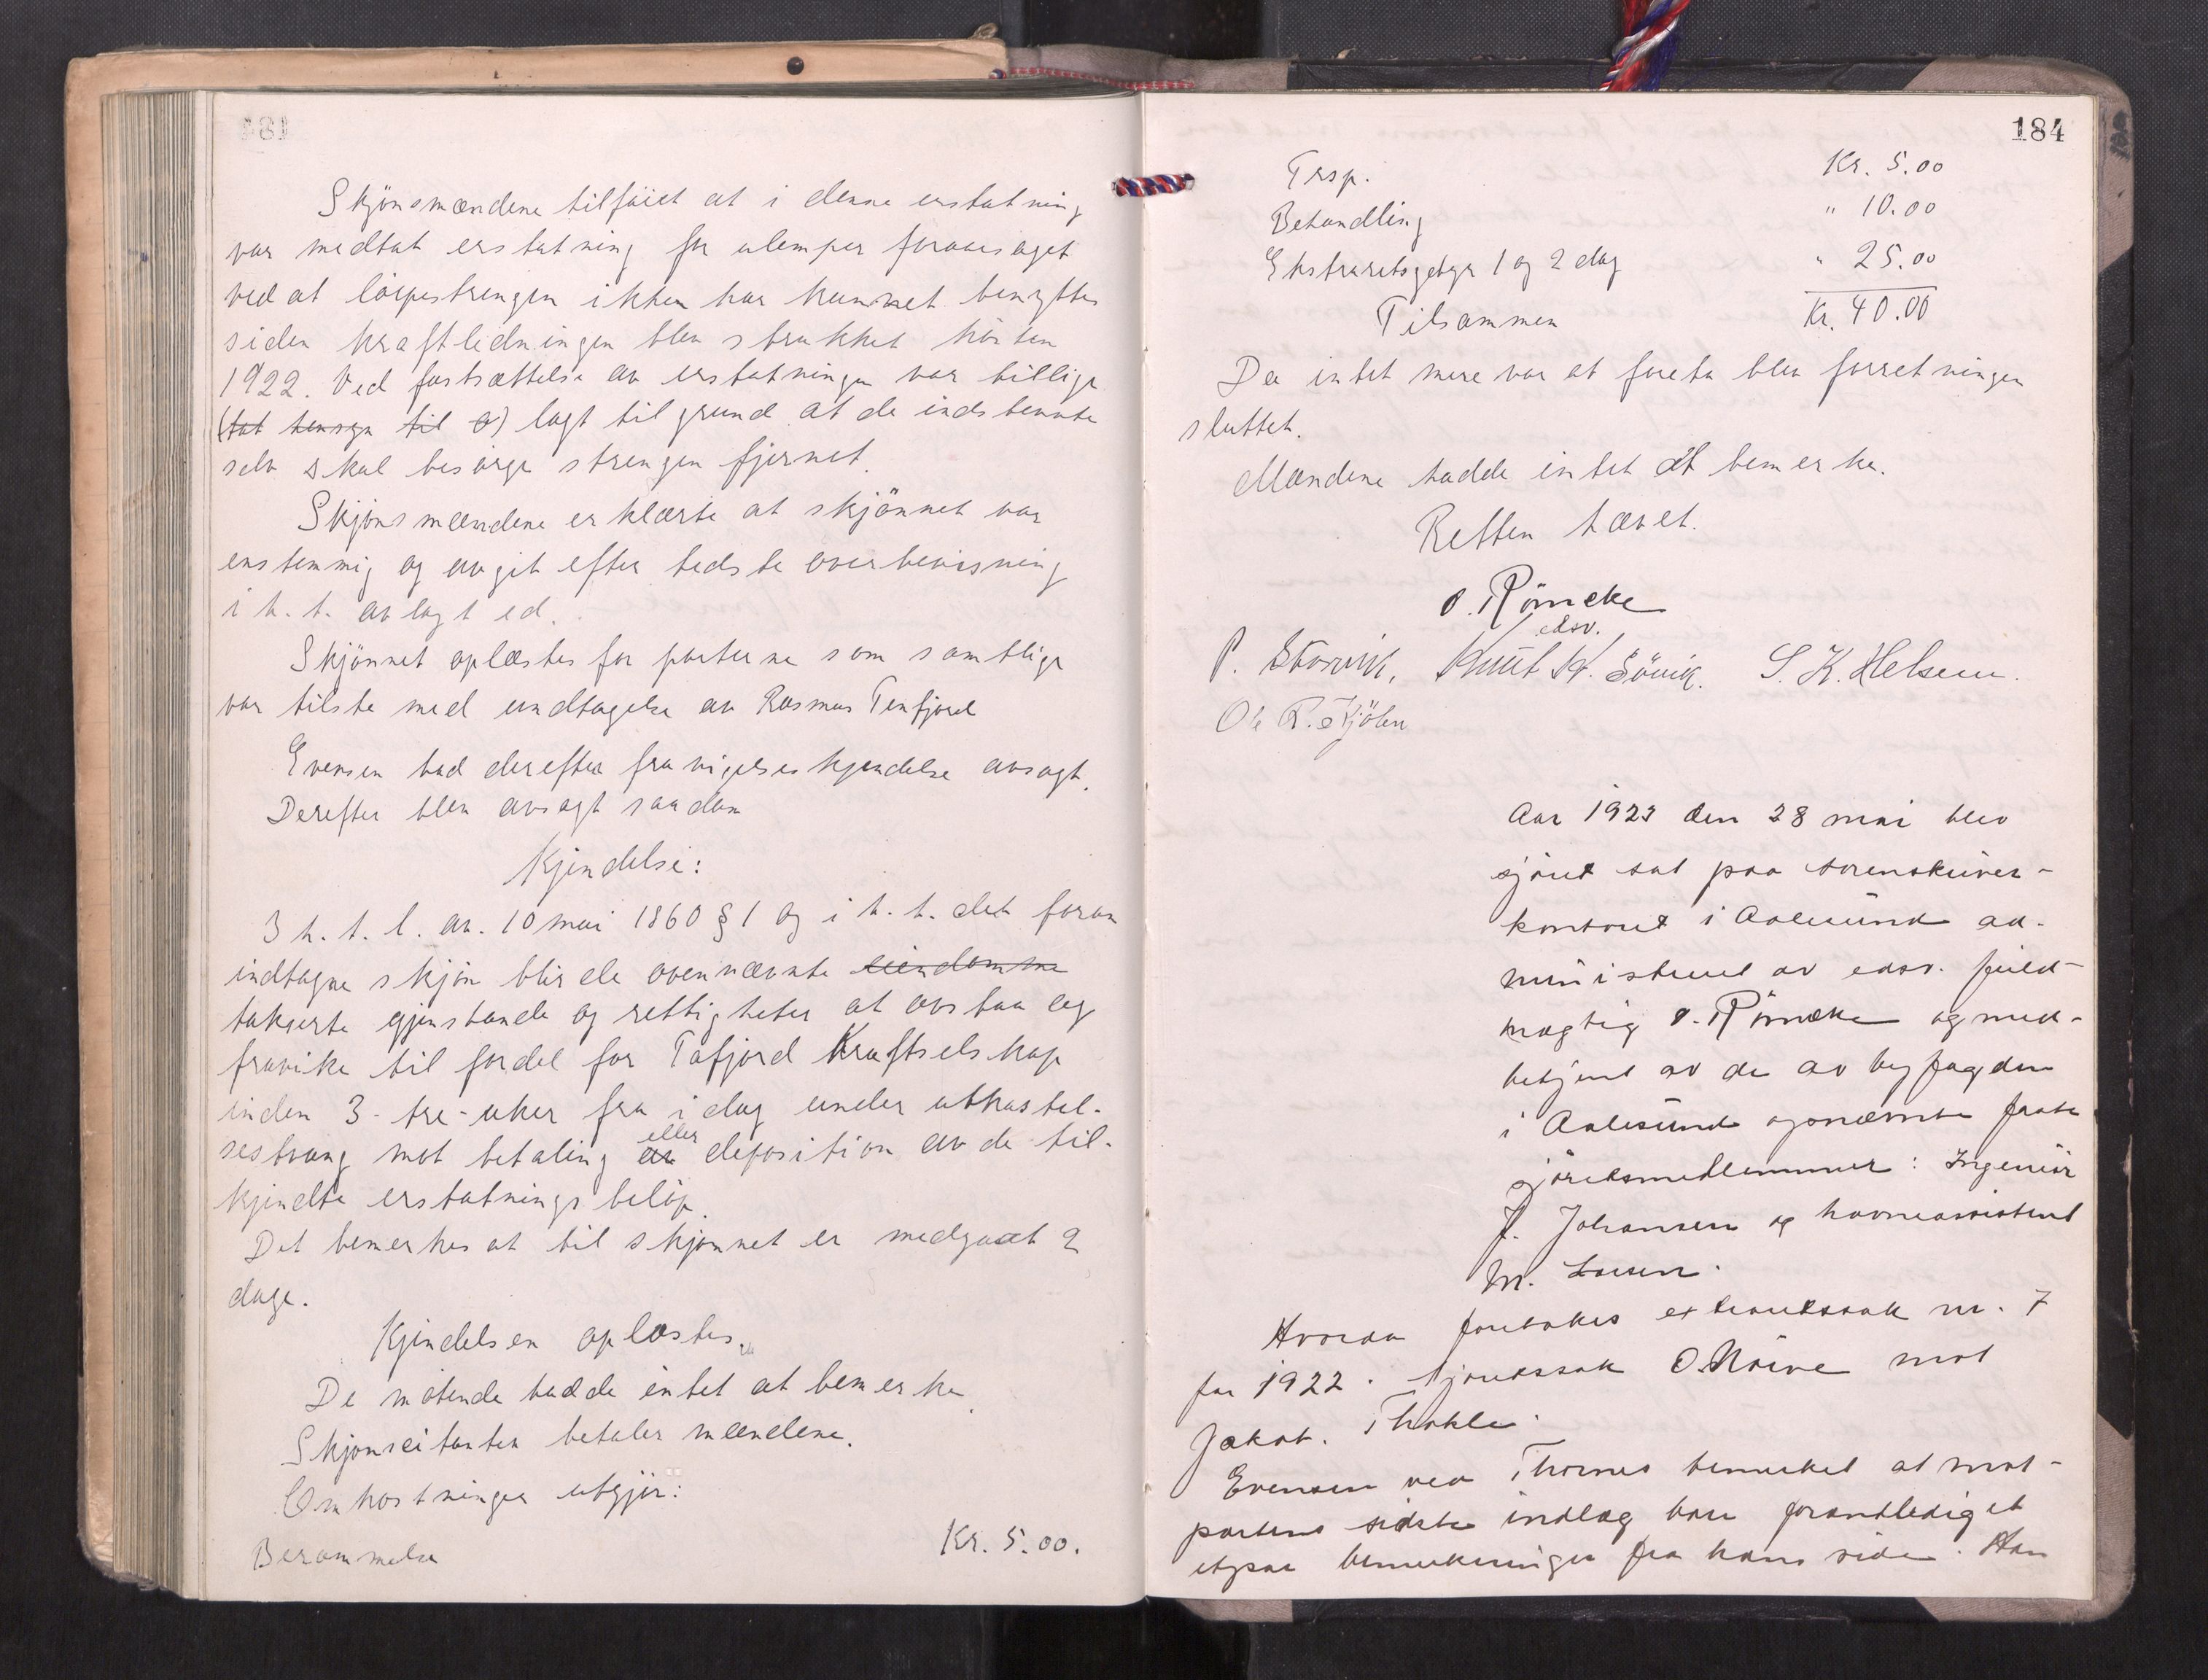 Skjønsmændene tilføiet at i denne erstatning
var medtat erstatning for ulemper foraarsaget
ved at løipestrengen ikke har kunnet benyttes
siden kraftledningen blev strukket høsten
1922. Ved fastsættelse av erstatningen var billige
(tat hensyn til a) lagt til grund at de indstevnte
selv skal besørge strengen fjernet.
Skjønsmændene erklærte at skjønnet var
enstemmig og avgit efter bedste overbevisning
i h. t. avlagt ed.
Skjønnet oplæstes for parterne som samtlige
var tilste med undtagelse av Rasmus Tenfjord
Evensen bad derefter fravigelseskjendelse avsagt.
Derefter blev avsagt saadan
Kjendelse:
I h. t. l. av. 10 mai 1860 § 1 og i h. t. det foran
indtagne skjøn blir de ovennævnte eiendomme
takserte gjenstande og rettigheter at avstaa og
fravike til fordel for Tafjord Kraftselskap
inden 3 - tre - uker fra idag under utkastel-
sestvang mot betaling av eller deposition av de til-
kjendte erstatningsbeløp.
Det bemerkes at til skjønnet er medgaat 2
dage.
Kjendelsen oplæstes.
De møtende hadde intet at bemerke.
Skjønscitanten betaler mændene.
Omkostninger utgjør:
Berammelse Kr. 5.00.
184
Trsp. Kr. 5.00
Behandling " 10.00
Ekstraretsgebyr 1 og 2 dag " 25.00
Tilsammen Kr. 40.00
Da intet mere var at foreta blev forretningen
sluttet.
Mændene hadde intet at bemerke.
Retten hævet.
O. Römcke
edsv.
P. Storvik, Knut K. Sövik. S. K. Helsem.
Ole R. Skjölen
Aar 1923 den 28 mai blev
sjøret sat paa sorenskriver-
kontoret i Aalesund ad-
ministreret av edsv. fuld-
mægtig O. Römcke og med-
betjent av de av byfogden
i Aalesund opnævnte faste
sjøretsmedlemmer: Ingeniør
J. Johansen og havneassistent
M. Larsen.
Hvorda foretokes extraretssak nr. 7
for 1922. Sjøretssak O. Nörve mot
Jakob. Thokle.
Evensen ved Thornes bemerket at mot-
partens sidste indlæg bare foranlediget
etpar bemerkninger fra hans side. Han